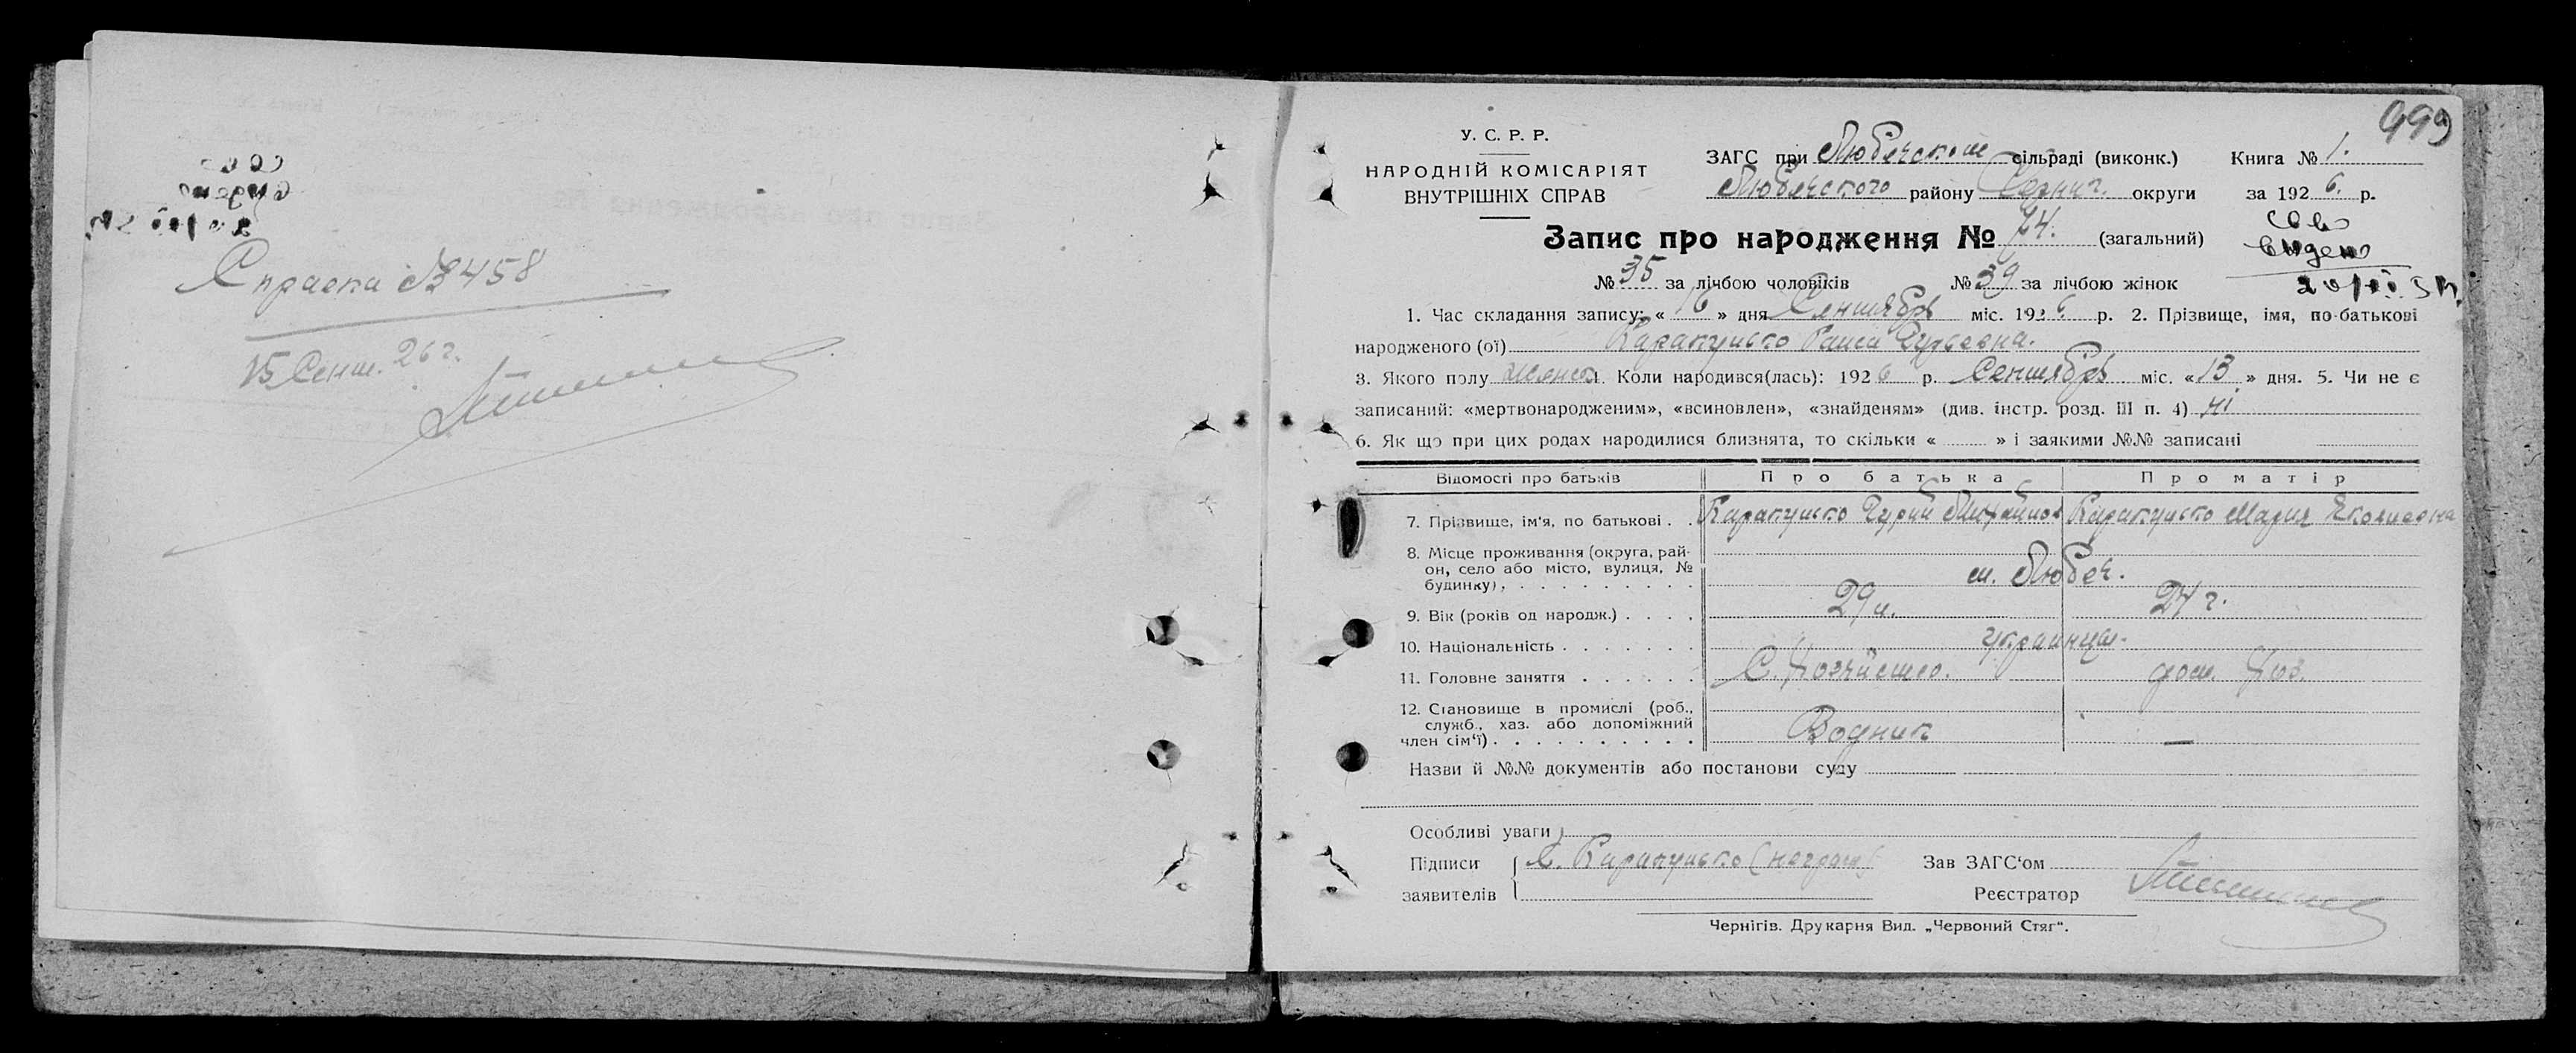 Справка № 458
15 Сент. 26 г.
999
У. С. Р. Р.
НАРОДНІЙ КОМІСАРІЯТ
ВНУТРІШНІХ СПРАВ
ЗАГС при Любечском сільраді (виконк.) Книга № 1.
Любечского району Черниг. округи за 1926. р.
Запис про народження № 74. (загальний)
№ 35 за лічбою чоловіків № 39 за лічбою жінок
1. Час складання запису: « 16 » дня Сентябрь міс. 1926. р. 2. Прізвище, імя, по-батькові
народженого (ої) Карапушко Раиса Гурьевна.
3. Якого полу женск. Коли народився(лась): 1926 р. Сентябрь міс. «13» дня. 5. Чи не є
записаний: «мертвонародженим», «всиновлен», «знайденям» (див. інстр. розд. III п. 4) ні
6. Як що при цих родах народилися близнята, то скільки « » і заякими №№ записані
Відомості про батьків Про батька Про матір
7. Прізвище, ім'я, по батькові . . Карапушко Гурий Михайлов Карапушко Мария Яковлевна
8. Місце проживання (округа, рай-
он, село або місто, вулиця, №
будинку), м. Любеч.
9. Вік (років од народж.) . . . . 29 л. 24 г.
10. Національність . . . . . . . украинцы.
11. Головне заняття . . . . . . С. Хозяйство. дом. Хоз.
12. Становище в промислі (роб.,
служб., хаз. або допоміжний
член сім'ї) . . . . . . . . . . Водник —
Назви й №№ документів або постанови суду
Особливі уваги
Підписи Карапушко (неграм.) Зав ЗАГС'ом
заявителів Реєстратор
Чернігів. Друкарня Вид. „Червоний Стяг".